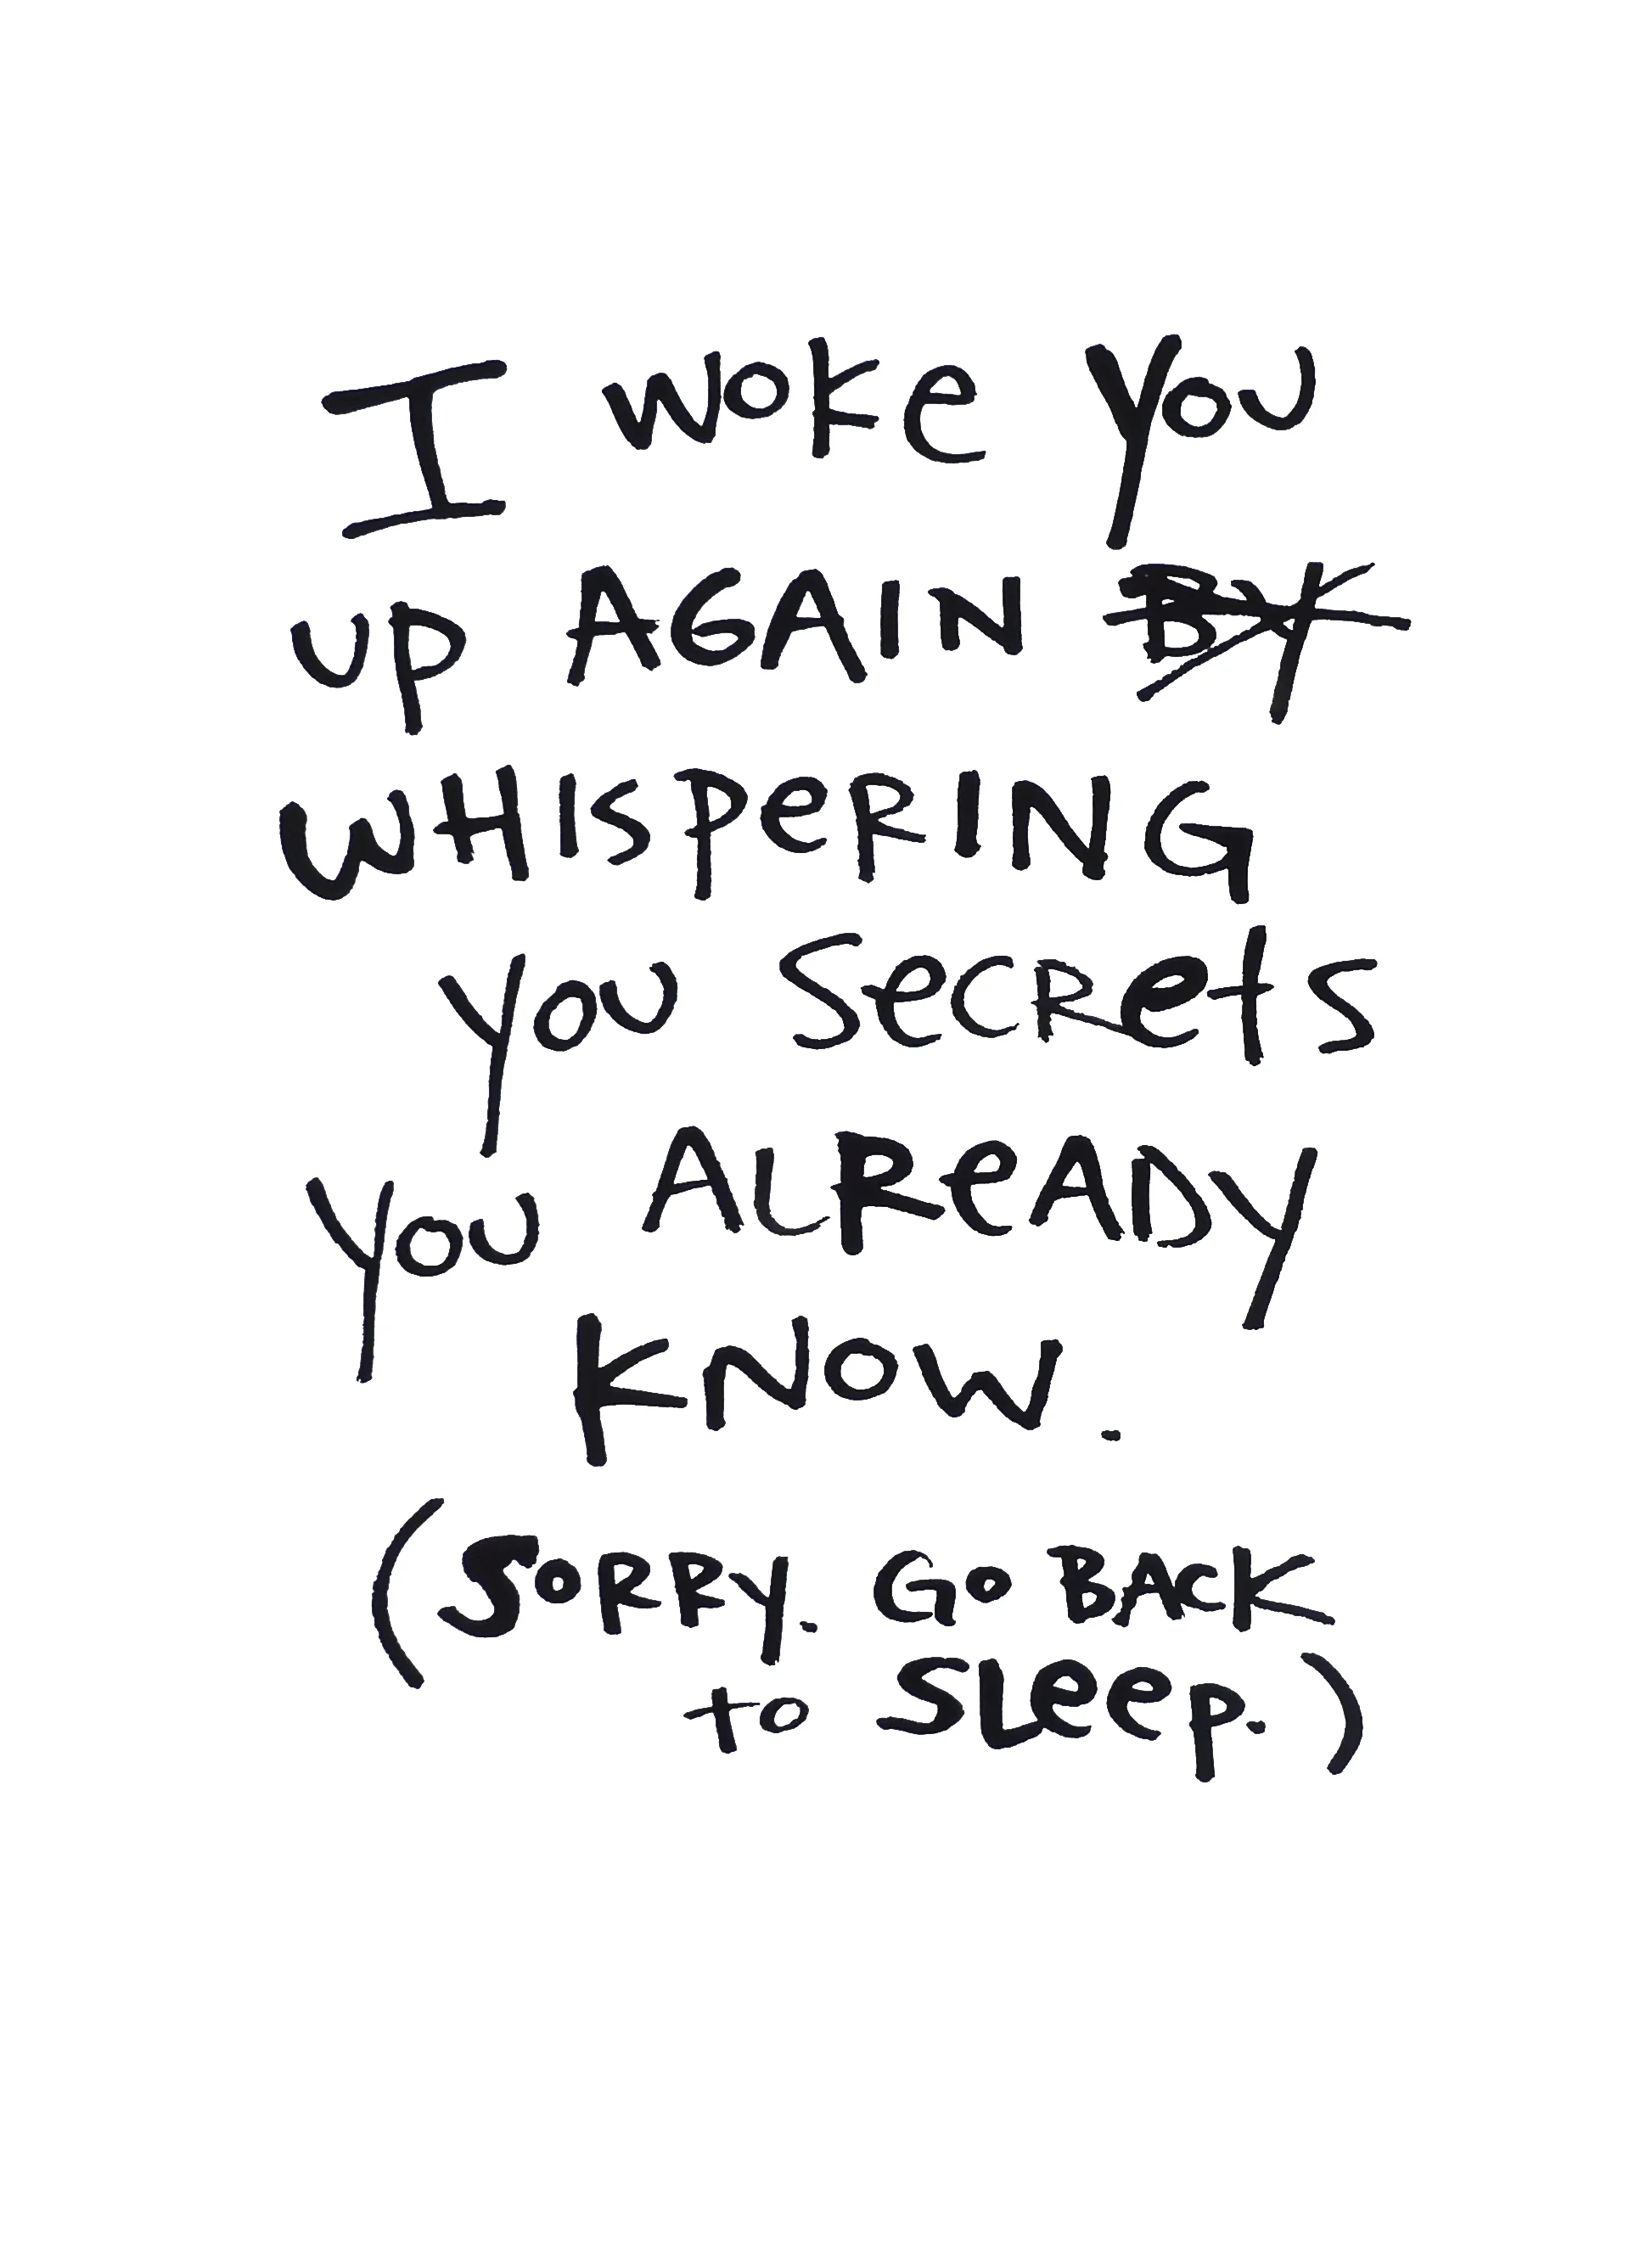 I woke you
up AGAIN BY
WHISPeRING
you SecRets
you ALReADY
KNOW.
(SORRY. GO BACK
to SLeep.)